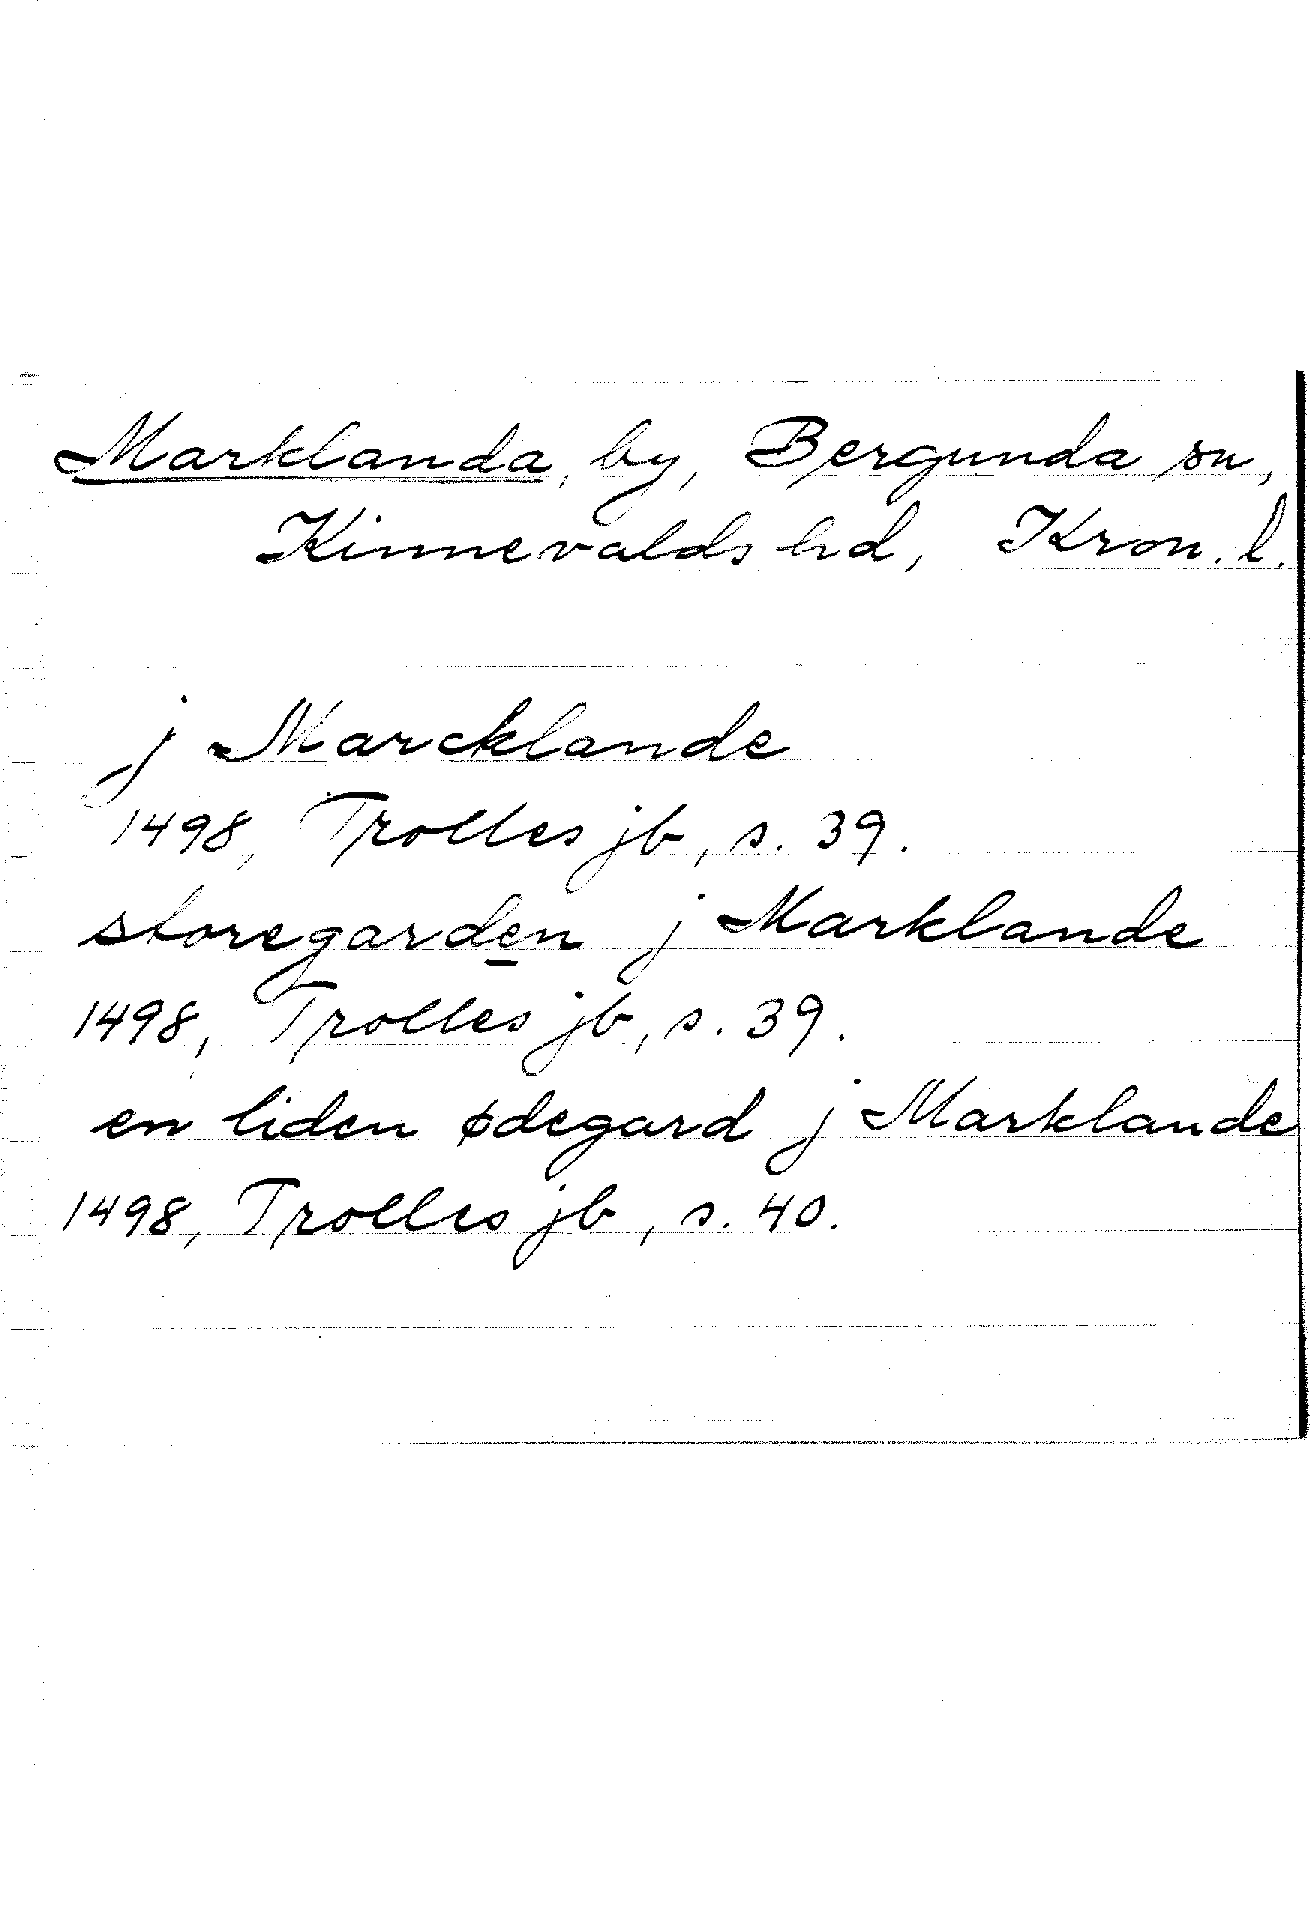 Marklanda, by, Bergunda sn,
Kinnevalds hd, Kron. l.
j Marcklande
1498, Trolles jb, s. 39.
storegarden j Marklande
1498, Trolles jb, s. 39.
en liden ødegard j Marklande
1498, Trolles jb, s. 40.